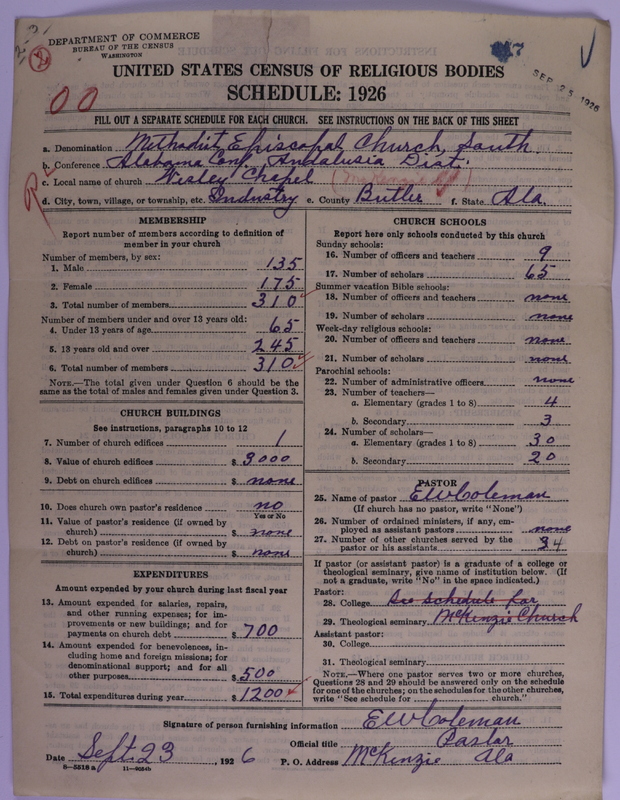 DEPARTMENT OF COMMERCE
BUREAU OF THE CENSUS
WASHINGTON
SEP 25 1926
UNITED STATES CENSUS OF RELIGIOUS BODIES
SCHEDULE: 1926
00
FILL OUT A SEPARATE SCHEDULE FOR EACH CHURCH. SEE INSTRUCTIONS ON THE BACK OF THIS SHEET
a. Denomination Methodist Episcopal Church, South
b. Conference Alabama Conf. Andalusia Dist.
c. Local name of church Wesley Chapel
d. City, town, village, or township, etc. Industry e. County Butler f. State Ala.
MEMBERSHIP
Report number of members according to definition of member in your church
Number of members, by sex:
1. Male 135
2. Female 175
3. Total number of members 310
Number of members under and over 13 years old:
4. Under 13 years of age 65
5. 13 years old and over 245
6. Total number of members 310
NOTE.—The total given under Question 6 should be the
same as the total of males and females given under Question 3.
CHURCH BUILDINGS
See instructions, paragraphs 10 to 12
7. Number of church edifices 1
8. Value of church edifices $ 3000
9. Debt on church edifices $ none
10. Does church own pastor's residence? no
Yes or No
11. Value of pastor's residence (if owned by
church) $ none
12. Debt on pastor's residence (if owned by
church) $ none
EXPENDITURES
Amount expended by your church during last fiscal year
13. Amount expended for salaries, repairs,
and other running expenses; for im-
provements or new buildings; and for
payments on church debt $ 700
14. Amount expended for benevolences, in-
cluding home and foreign missions; for
denominational support; and for all
other purposes $ 500
15. Total expenditures during year $ 1200
CHURCH SCHOOLS
Report here only schools conducted by this church
Sunday schools:
16. Number of officers and teachers 9
17. Number of scholars 65
Summer vacation Bible schools:
18. Number of officers and teachers none
19. Number of scholars none
Week-day religious schools:
20. Number of officers and teachers none
21. Number of scholars none
Parochial schools:
22. Number of administrative officers none
23. Number of teachers—
a. Elementary (grades 1 to 8) 4
b. Secondary 3
24. Number of scholars—
a. Elementary (grades 1 to 8) 30
b. Secondary 20
PASTOR
25. Name of pastor E W Coleman
(If church has no pastor, write "None")
26. Number of ordained ministers, if any, em-
ployed as assistant pastors none
27. Number of other churches served by the
pastor or his assistants 34
If pastor (or assistant pastor) is a graduate of a college or
theological seminary, give name of institution below. (If
not a graduate, write "No" in the space indicated.)
Pastor:
28. College See schedule for
29. Theological seminary McKenzie Church
Assistant pastor:
30. College
31. Theological seminary
NOTE.—Where one pastor serves two or more churches,
Questions 28 and 29 should be answered only on the schedule
for one of the churches; on the schedules for the other churches,
write "See schedule for church."
Signature of person furnishing information E W Coleman
Official title Pastor
Date Sept. 23, 1926 P. O. Address McKenzie Ala
8—5518 a 11—9054b